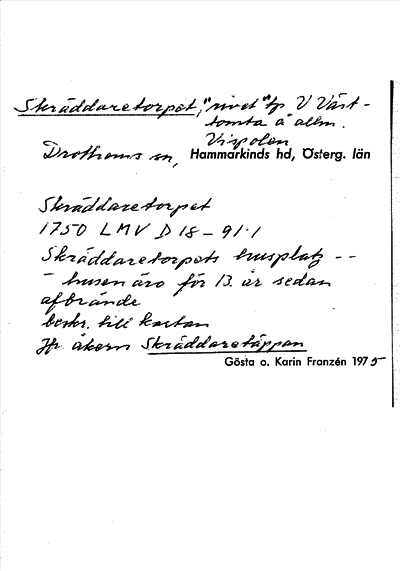 Skräddaretorpet, "rivet" tp V Väst-
tomta å allm.
Vispolen
Drothems sn, Hammarkinds hd, Österg. län
Skräddaretorpet
1750 LMV D 18 - 91:1
Skräddaretorpets husplatz --
- husen äro för 13 år sedan
afbrände
beskr. till kartan
Jfr åkern Skräddaretäppan
Gösta o. Karin Franzén 1975